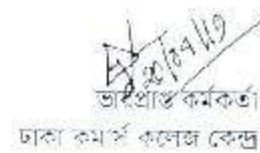 ২০/০৭/১৭
ভারপ্রাপ্ত কর্মকর্তা
ঢাকা কমার্স কলেজ কেন্দ্র